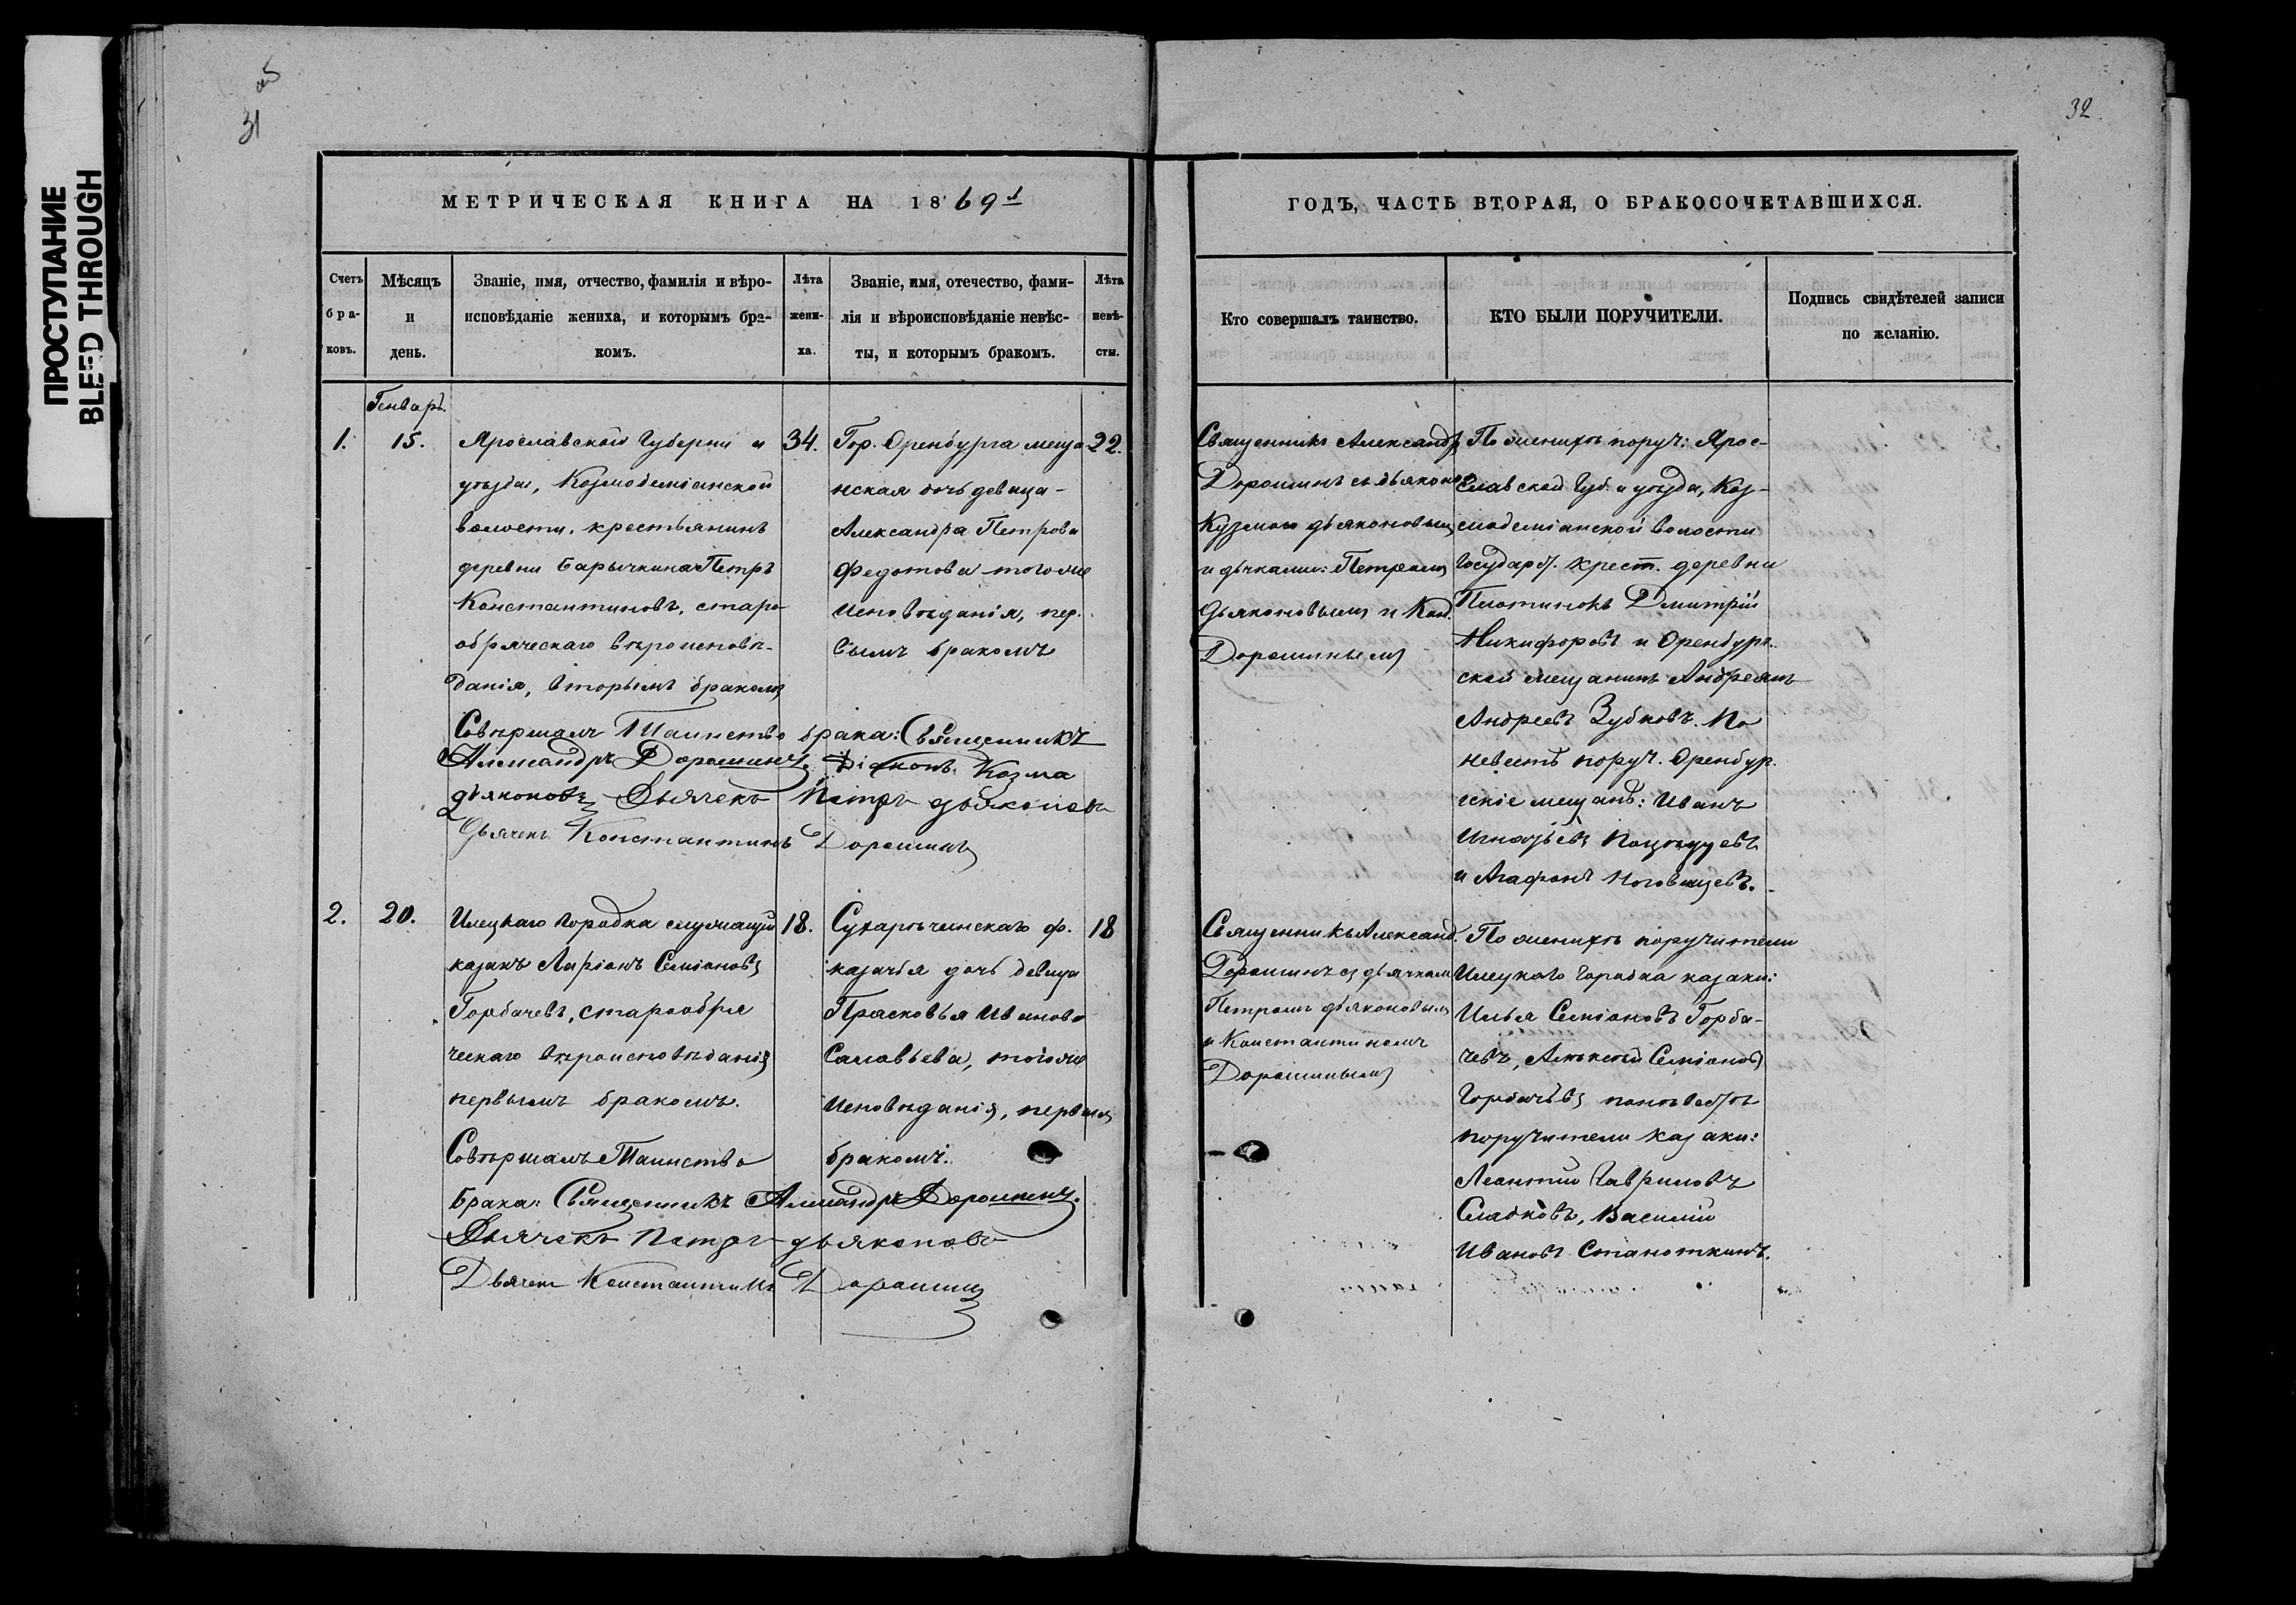 ПРОСТУПАНИЕ
BLEED THROUGH
об
31
32.
МЕТРИЧЕСКАЯ КНИГА НА 1869й
Счетъ
бра-
ковъ.
Мѣсяцъ
и
день.
Званіе, имя, отчество, фамилія и вѣро-
исповѣданіе жениха, и которымъ бра-
комъ.
Лѣта
жени-
ха.
Званіе, имя, отечество, фами-
лія и вѣроисповѣданіе невѣс-
ты, и которымъ бракомъ.
Лѣта
невѣ-
сты.
Генварь.
1.
15.
Ярославской Губерніи и
уѣзда, Козмодеміанской
волости, крестьянинъ
деревни Барычкина Петръ
Константиновъ, старо-
обряческаго вѣроисповѣ-
данія, вторымъ бракомъ
34.
Гор. Оренбурга меща-
нская дочь девица-
Александра Петрова
Федотова тогоже
исповѣданія, пер.
вымъ бракомъ
22.
Совершалъ Таинство брака: Священникъ
Александръ Дорошинъ. Діаконъ Козма
дьяконовъ Дьячекъ Петръ дьяконовъ
Дьячекъ Константинъ Дорошинъ
2.
20.
Илецкаго Городка служащій
казакъ Ларіонъ Семіоновъ
Горбачевъ, старообря
ческаго вѣроисповѣданія
первымъ бракомъ.
18.
Сухарѣчинскаго ф.
казачья дочь девица
Прасковья Иванова
Салавьева, тогоже
исповѣданія, первымъ
бракомъ.
18
Совершалъ Таинство
Брака: Священникъ Александръ Дорошинъ.
Дьячекъ Петръ дьяконовъ
Дьячекъ Константинъ Дорошинъ
ГОДЪ, ЧАСТЬ ВТОРАЯ, О БРАКОСОЧЕТАВШИХСЯ.
Кто совершалъ таинство.
КТО БЫЛИ ПОРУЧИТЕЛИ.
Подпись свидѣтелей записи
по желанію.
Священникъ Александръ
Дорошинъ съ дьякономъ
Кузмою дьяконовымъ
и дьчками: Петромъ
Дьяконовымъ и Кон.
Дорошинымъ
По женихѣ поруч: Ярос-
славской Губ. и уѣзда, Коз-
модеміанской волости
Государст. крест. деревни
Плотинокъ Дмитрій
Никифоровъ и Оренбург.
ской мещанинъ Андреянъ
Андреевъ Зубковъ. По
невестѣ поруч. Оренбур.
гскіе мещанѣ: Иванъ
Игнатьевъ
и Агафонъ Ноговицевъ.
Священникъ Александ.
Дорошинъ съ дьячкам
Петромъ дьяконовымъ
и Константиномъ
Дорошинымъ
По женихѣ поручители
Илецкаго Городка казаки:
Илья Семіоновъ Горба-
чевъ, Алексѣй Семіоновъ
Горбачевъ, поневестѣ
поручители казаки:
Леантій Гавриловъ
Сладковъ, Василій
Ивановъ Станоткинъ.